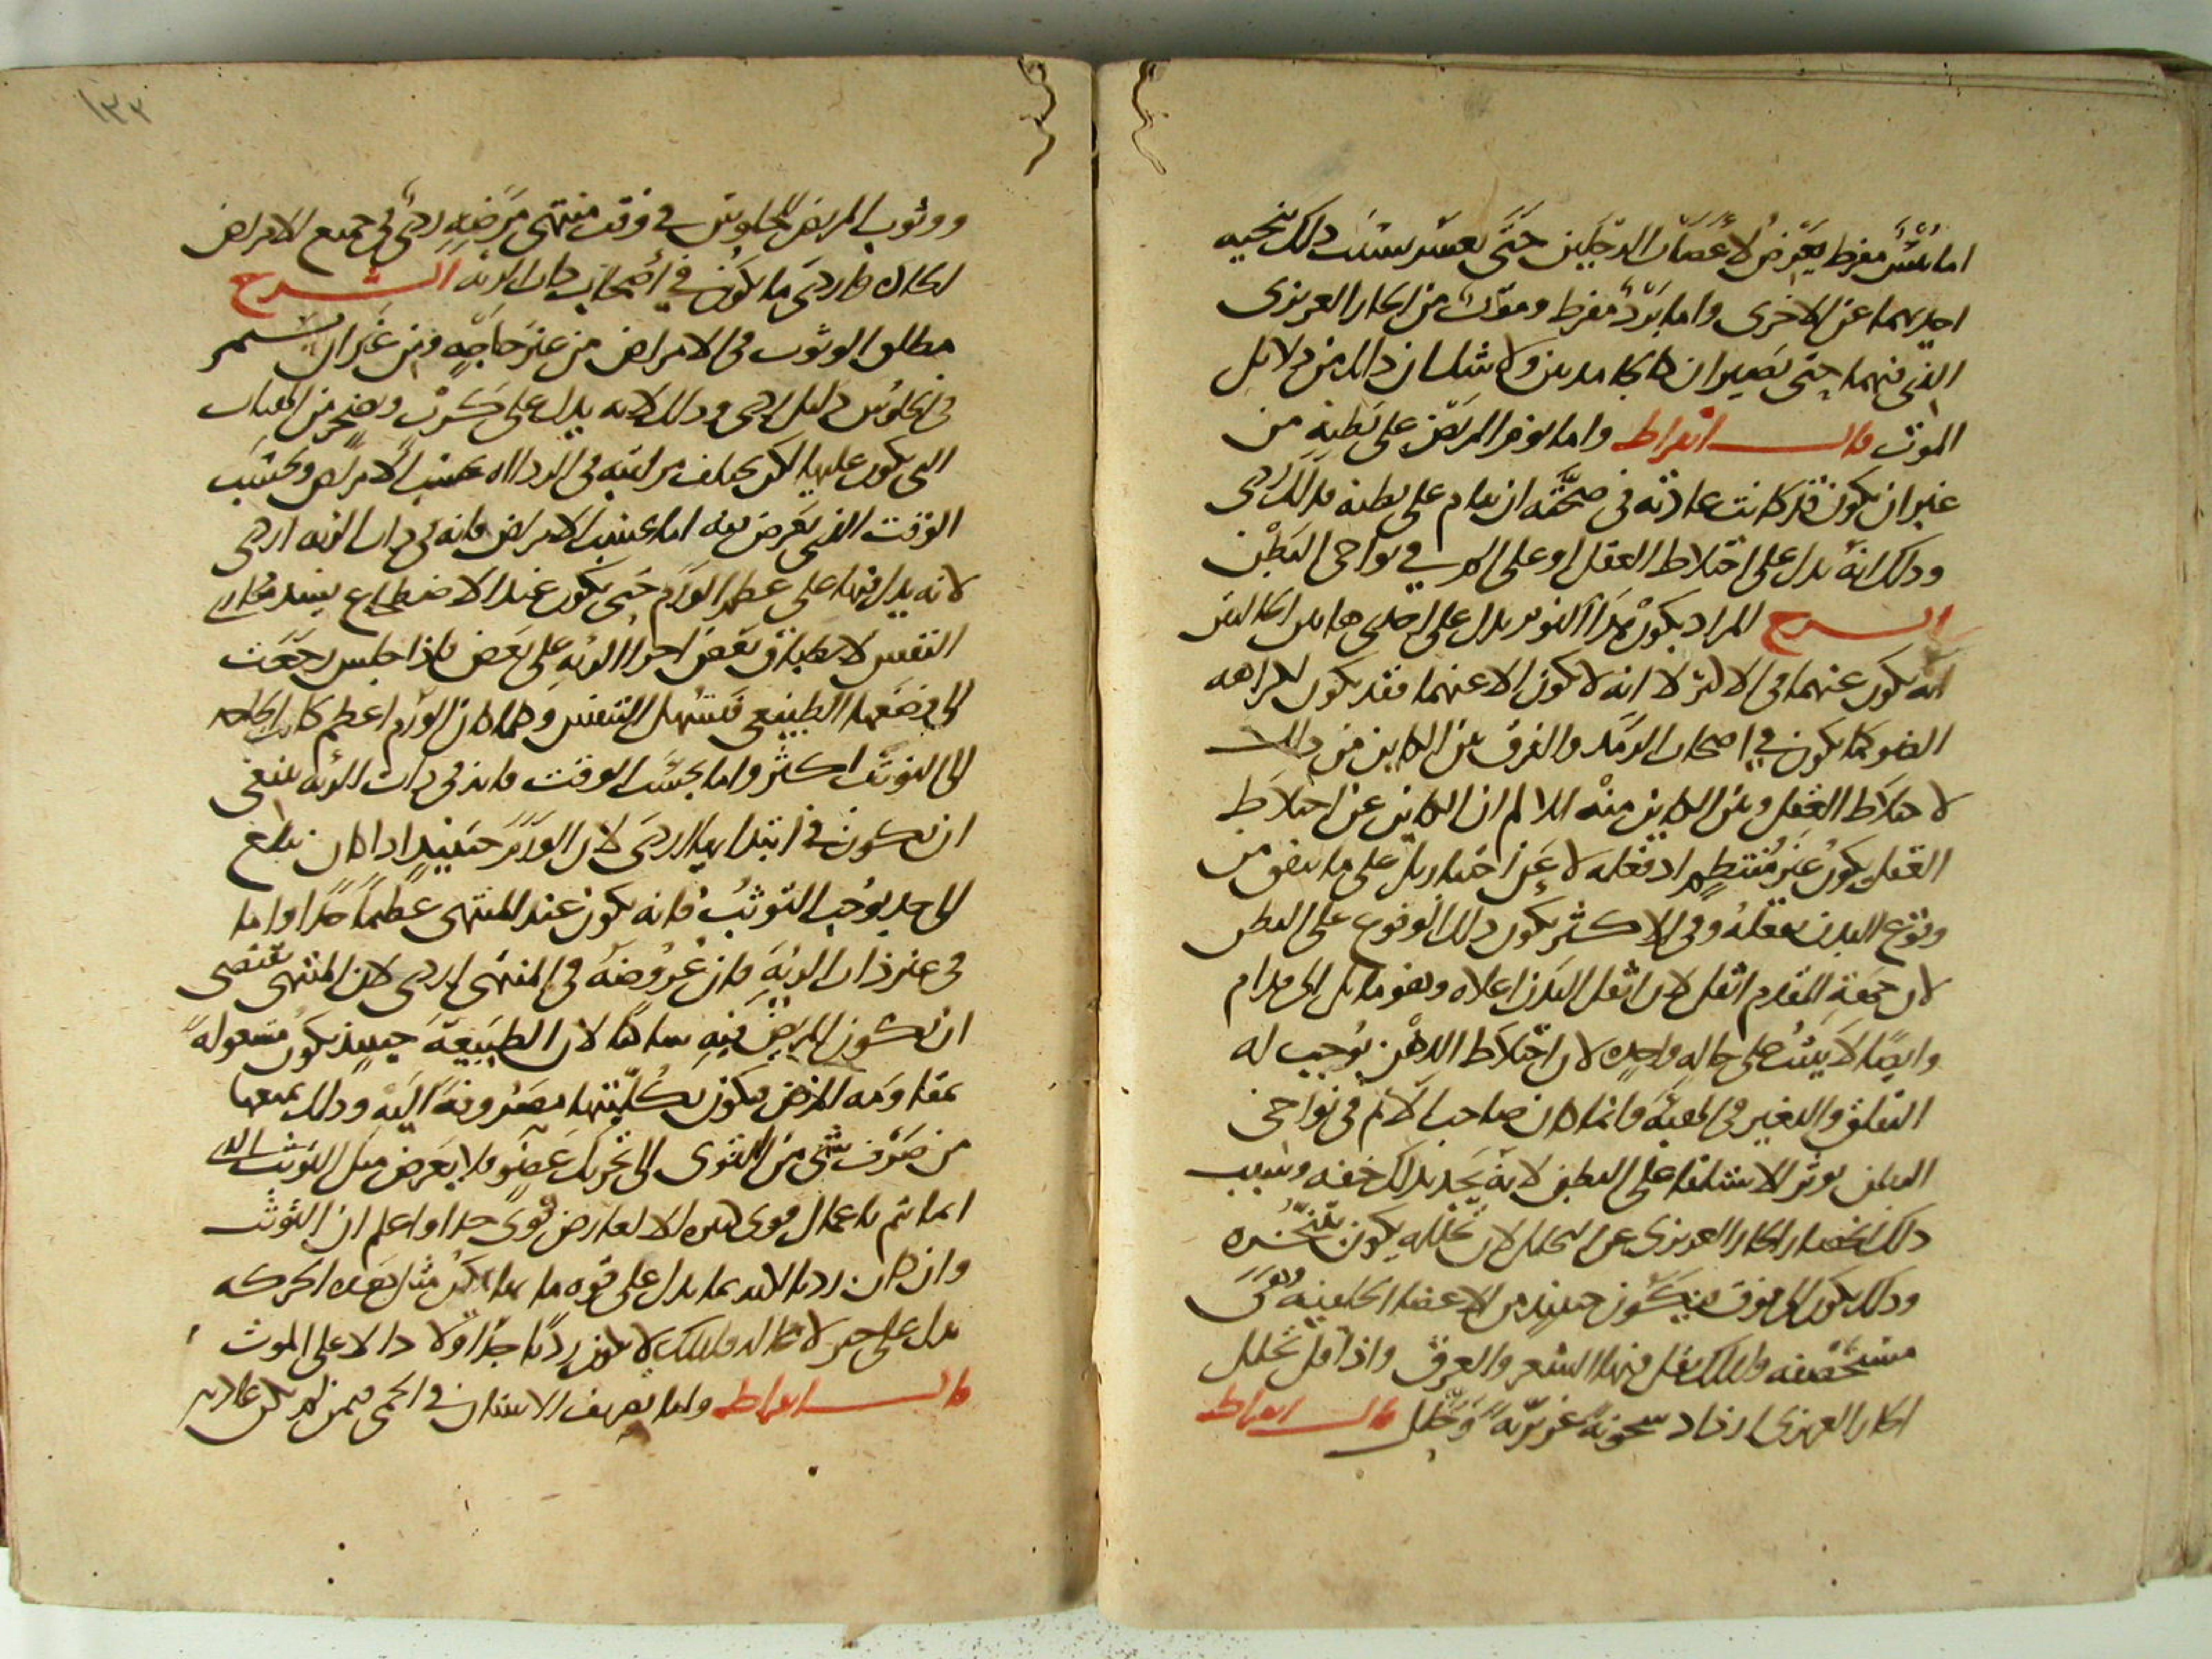 اما يبس مفرط يعرض لاعصاب الرجلين حتى يعسر بسبب ذلك تنحيه
احديهما عن الاخرى واما برد مفرط وموت من الحار الغريزى
الذى فيهما حتى تصيران كالجامدين ولا شك ان ذلك من دلائل
الموت قال ابقراط واما نوم المريض على بطنه من
غير ان يكون قد كانت عادته في صحته ان ينام على بطنه فذلك ردى
وذلك انه يدل على اختلاط العقل او على الم في نواحى البطن
الشرح المراد بكون هذا النوم يدل على احدى هاتين الحالتين
انه يكون عنهما في الاكثر لا انه لا يكون الا عنهما فقد يكون لكراهه
الضو كما يكون في اصحاب الرمد والفرق بين الكاين من ذلك
لاختلاط العقل وبين الكاين منه للالم ان الكاين عن اختلاط
العقل يكون غير منتظم اذ فعله لا عن اختيار بل على ما يتفق من
وقوع البدن بفعله وفي الاكثر يكون ذلك الوقوع على البطن
لان جهة المقدم اثقل لان اثقل البدن اعلاه وهو مايل الى قدام
وايضا لا يثبت على حاله واحده لان اختلاط الذهن يوجب له
التقلق والتغير في الهيئه وانما كان صاحب الالم في نواحى
البطن يوثر الاستلقا على البطن لانه يجد بذلك خفه وسبب
ذلك انحصار الحار الغريزى عن التحلل لان تحلله يكون بتبخره
وذلك يكون الى فوق فيكون حينئذ من الاعضا الخلفيه وهى
مستحصفه ولذلك يقل فيها الشعر والعرق واذا قل تحلل
الحار الغريزى ازداد سخونة غريزية وحلل قال ابقراط
١٣٢
ووثوب المريض للجلوس في وقت منتهى مرضه ردى في جميع الامراض
الحاده واردى ما يكون في اصحاب ذات الريه الشرح
مطلق الوثوب في الامراض من غير حاجة ومن غير ان يستمر
في الجلوس دليل ردى وذلك لانه يدل على كرب وضجر من الهيات
التى يكون عليها لكن يختلف مراتبه في الرداه بحسب الامراض وبحسب
الوقت الذى يعرض فيه اما بحسب الامراض فانه في ذات الريه اردى
لانه يدل فيها على عظم الورم حتى يكون عند الاضطجاع يفسد مجارى
النفس لانطباق بعض اجزا الريه على بعض فاذا جلس رجعت
الى وضعها الطبيعى فيسهل التنفس وكلما كان الورم اعظم كانت الحاجه
الى التوثب اكثر واما بحسب الوقت فانه في ذات الريه ينبغى
ان يكون في ابتدايها اردى لان الورم حينئذ اذا كان يبلغ
الى حد يوجب التوثب فانه يكون عند المنتهى عظيما جدا واما
في غير ذات الريه فان عروضه في المنتهى اردى لان المنتهى يقتضى
ان يكون المريض فيه ساكنا لان الطبيعة حينئذ يكون مشغولة
بمقاومه المرض فيكون بكليتها مصروفة اليه وذلك يمنعها
من صرف شى من القوى الى تحريك عضو فلا يعرض مثل التوثب الذى
انما يتم باعمال قوى كثيره الا لعارض قوى جدا واعلم ان التوثب
وان كان رديا لكنه بما يدل على قوه ما لان مثل هذه الحركه
تدل على جولا محاله فلذلك لا يكون رديا جدا ولا دالا على الموت
قال ابقراط واما تصريف الاسنان في الحمى فيمن لم يكن عادته